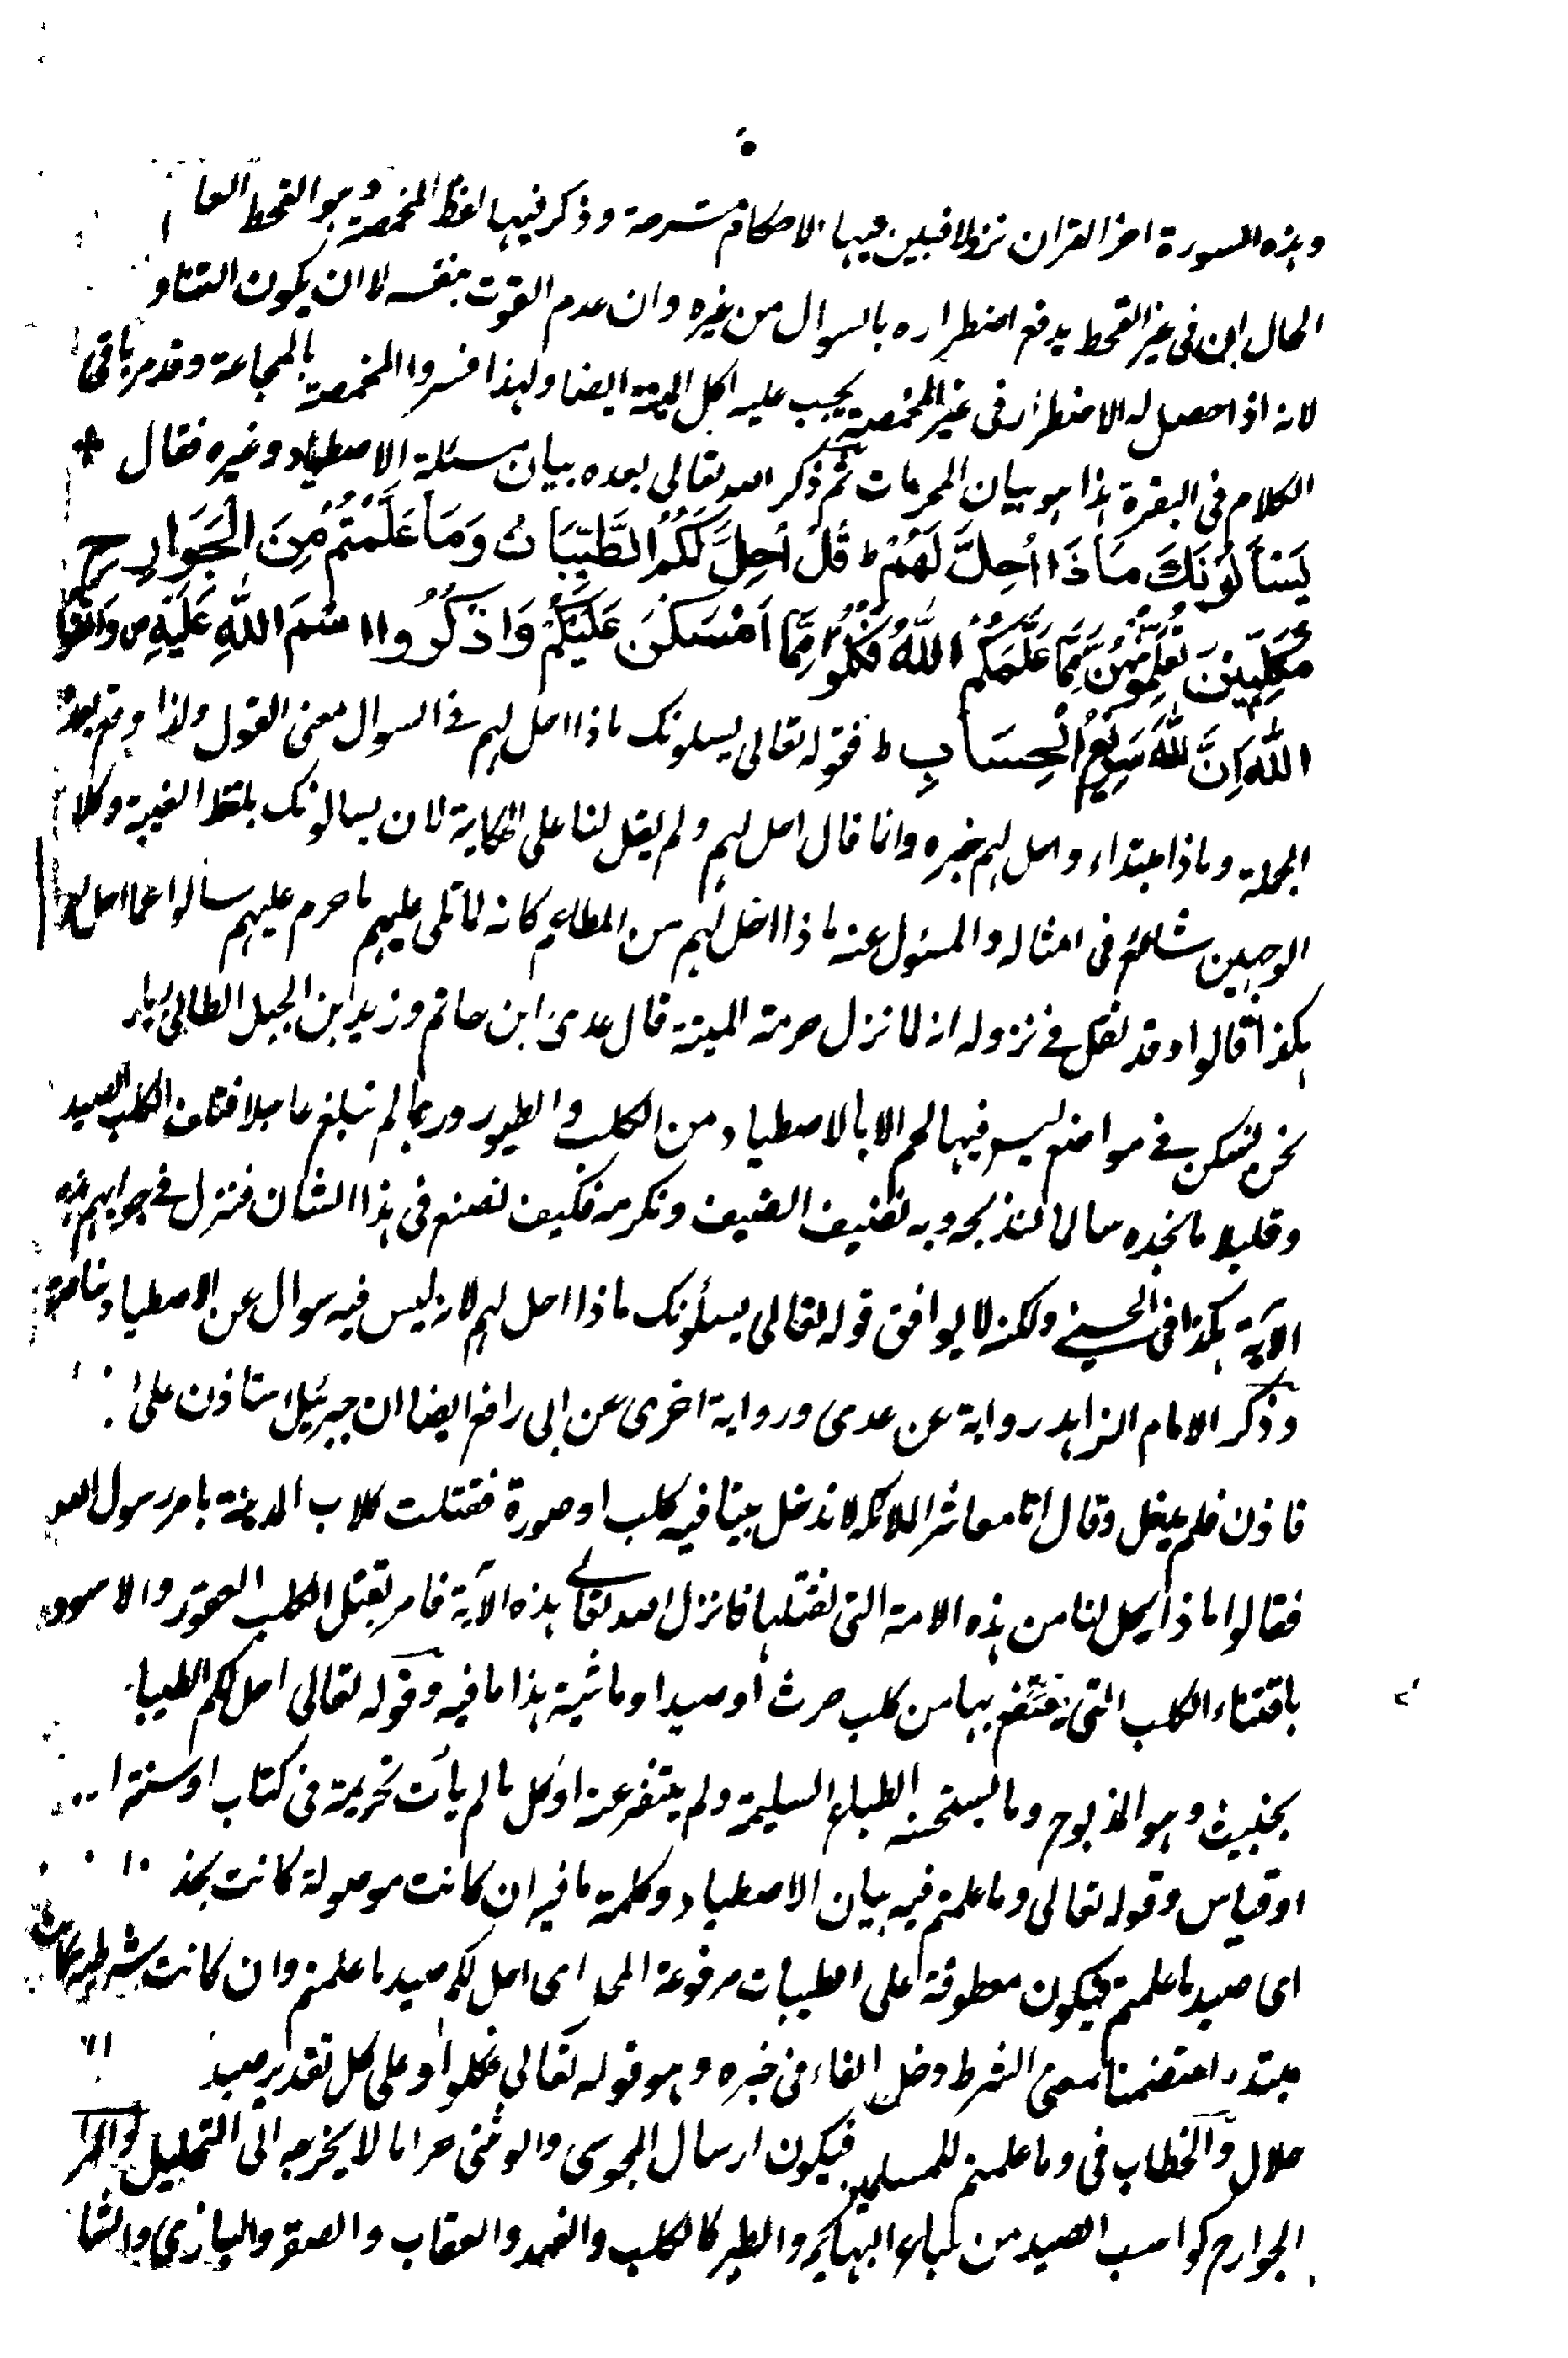 وہذہ السورۃ اخر القران نزولا فبین فیہا الاحکام مشرحۃ وذکر فیہا لفظ المخمصۃ وہو القحط العا
الحال ان فی غیر القحط یدفع اضطرارہ بالسوال من غیرہ وان عدم القوت بنفسہ لا ان یکون التناو
لانہ اذا حصل لہ الاضطرار فی غیر المخمصۃ یجب علیہ اکل المیتۃ ایضا ولہذا فسروا المخمصۃ بالمجاعۃ وقد مر باقی
الکلام فی البقرۃ ہذا ہو بیان المحرمات ثم ذکر اللہ تعالی بعدہ بیان مسئلۃ الاصطیاد وغیرہ فقال
يَسْأَلُوْنَكَ مَاذَا اُحِلَّ لَهُمْ ط قُلْ اُحِلَّ لَكُمُ الطَّيِّبَاتُ وَمَا عَلَّمْتُمْ مِنَ الْجَوَارِحِ
مُكَلِّبِيْنَ تُعَلِّمُوْنَهُنَّ مِمَّا عَلَّمَكُمُ اللّٰهُ فَكُلُوْا مِمَّا اَمْسَكْنَ عَلَيْكُمْ وَاذْكُرُوا اسْمَ اللّٰهِ عَلَيْهِ ص وَاتَّقُوا
اللّٰهَ اِنَّ اللّٰهَ سَرِيْعُ الْحِسَابِ ط فقولہ تعالی یسئلونک ماذا احل لہم فے السوال معنی القول ولذا وقع بعدہ
الجملۃ وماذا مبتداء واحل لہم خبرہ وانما قال احل لہم ولم یقل لنا علی الحکایۃ لان یسالونک بلفظ الغیبۃ وکلا
الوجہین شائع فی امثالہ والمسئول عنہ ماذا احل لہم من المطاعم کانہ لما تلی علیہم ما حرم علیہم سألوا عما احل لہم
ہکذا قالوا وقد نقل فے نزولہ انہ لما نزل حرمۃ المیتۃ قال عدی ابن حاتم وزید ابن الجبل الطائی یار
نحن نسکن فے مواضع لیس فیہا لحم الا بالاصطیاد من الکلب والطیور وربما لم نبلغ عاجلا فتلف الکلب الصید
وقلیلا ما نجدہ سالما لنذبحہ وبہ نضیف الضیف ونکرمہ فکیف نصنع فی ہذا الشان فنزل فے جوابہم ہذہ
الآیۃ ہکذا فی الحسینے ولکنہ لا یوافق قولہ تعالی یسئلونک ماذا احل لہم لانہ لیس فیہ سوال عن الاصطیاد
وذکر الامام الزاہد روایۃ عن عدی وروایۃ اخری عن ابی رافع ایضا ان جبرئیل استاذن علی
فاذن فلم یدخل وقال انا معاشر الملائکۃ لا ندخل بیتا فیہ کلب او صورۃ فقتلت کلاب المدینۃ بامر رسول اللہ
فقالوا ماذا یحل لنا من ہذہ الامۃ التی نقتلہا فانزل اللہ تعالے ہذہ الآیۃ فامر بقتل الکلب العقور والاسود
باقتناء الکلب التی ینتفع بہا من کلب حرث او صید او ماشیۃ ہذا ما فیہ وقولہ تعالی احل لکم الطیبا
بخبیث وہو المذبوح وما یستحسنہ الطباع السلیمۃ ولم یتنفر عنہ او کل ما لم یأت تحریمہ فی کتاب او سنۃ
او قیاس وقولہ تعالی وما علمتم فیہ بیان الاصطیاد وکلمۃ ما فیہ ان کانت موصولۃ کانت بحذ
ای صید ما علمتم فیکون معطوفۃ علی الطیبات مرفوعۃ المحل ای احل لکم صید ما علمتم وان کانت شرطیۃ کانت
مبتدء متضمنا بمعنی الشرط دخل الفاء فی خبرہ وہو قولہ تعالی فکلوا وعلی کل تقدیر صید
حلال والخطاب فی وما علمتم للمسلمین فیکون ارسال المجوسی والوثنی حراما لا یخرجہ الی التحلیل والمر
الجوارح کواسب الصید من سباع البہائم والطیر کالکلب والفہد والعقاب والصقر والبازی والشا